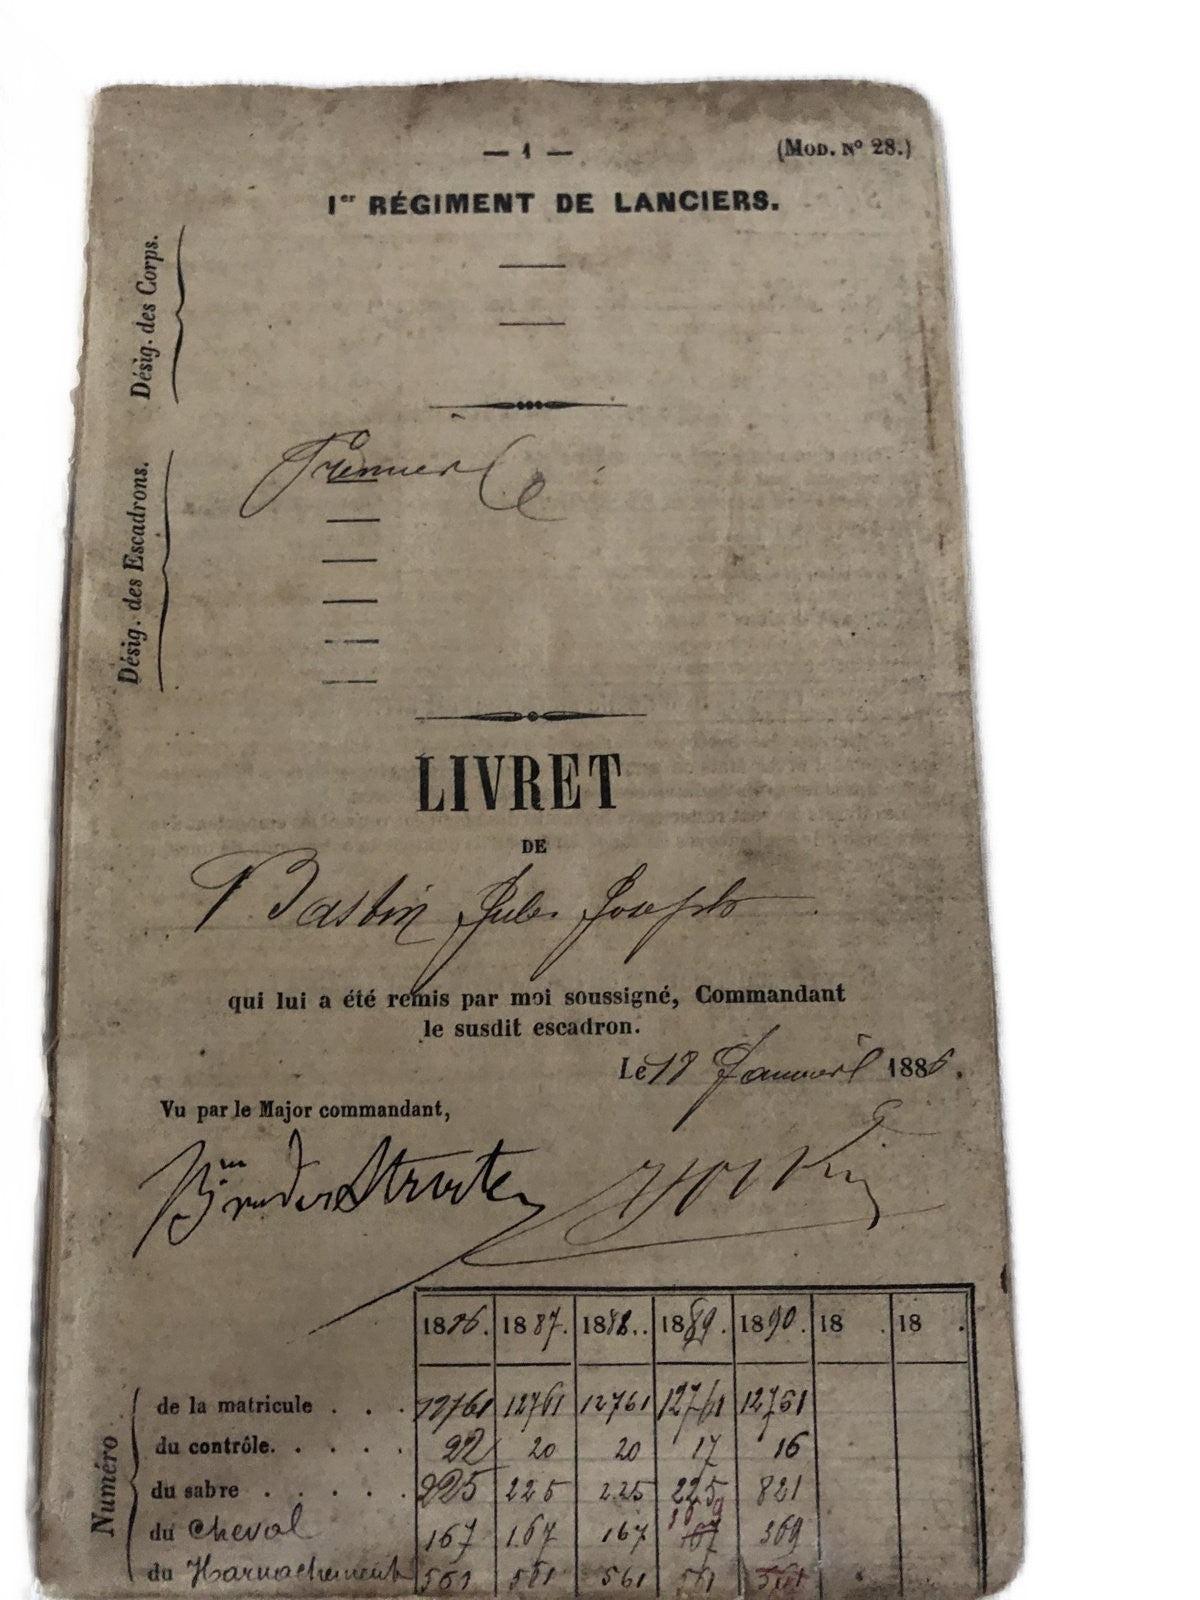 — 1 —
(Mod. Nº 28.)
1er RÉGIMENT DE LANCIERS.
Désig. des Corps.
Désig. des Escadrons.
Premier
LIVRET
DE
Bastin Jules Joseph
qui lui a été remis par moi soussigné, Commandant
le susdit escadron.
Le 18 Janvier 1886.
Vu par le Major commandant,
1886. 1887. 1888. 1889. 1890. 18 . 18 .
Numéro
de la matricule . . . 12761 12761 12761 12761 12761
du contrôle. . . . . 22 20 20 17 16
du sabre . . . . . 225 225 225 225 821
du Cheval 167 167 167 167 369
du Harnachement 561 561 561 561 561